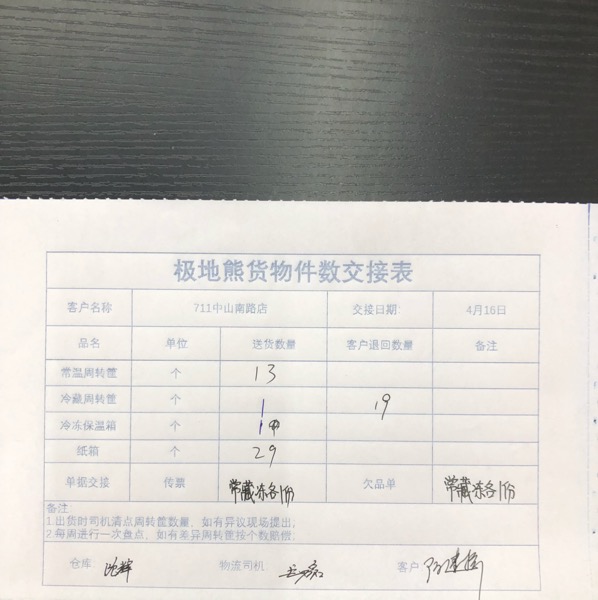 极地熊货物件数交接表
客户名称 711中山南路店 交接日期: 4月16日
品名 单位 送货数量 客户退回数量 备注
常温周转筐 个 13
冷藏周转筐 个 1 19
冷冻保温箱 个 1
纸箱 个 29
单据交接 传票 常藏冻各1份 欠品单 常藏冻各1份
备注:
1.出货时司机清点周转筐数量，如有异议现场提出;
2.每周进行一次盘点，如有差异周转筐按个数赔偿;
仓库: 沈辉 物流司机 客户